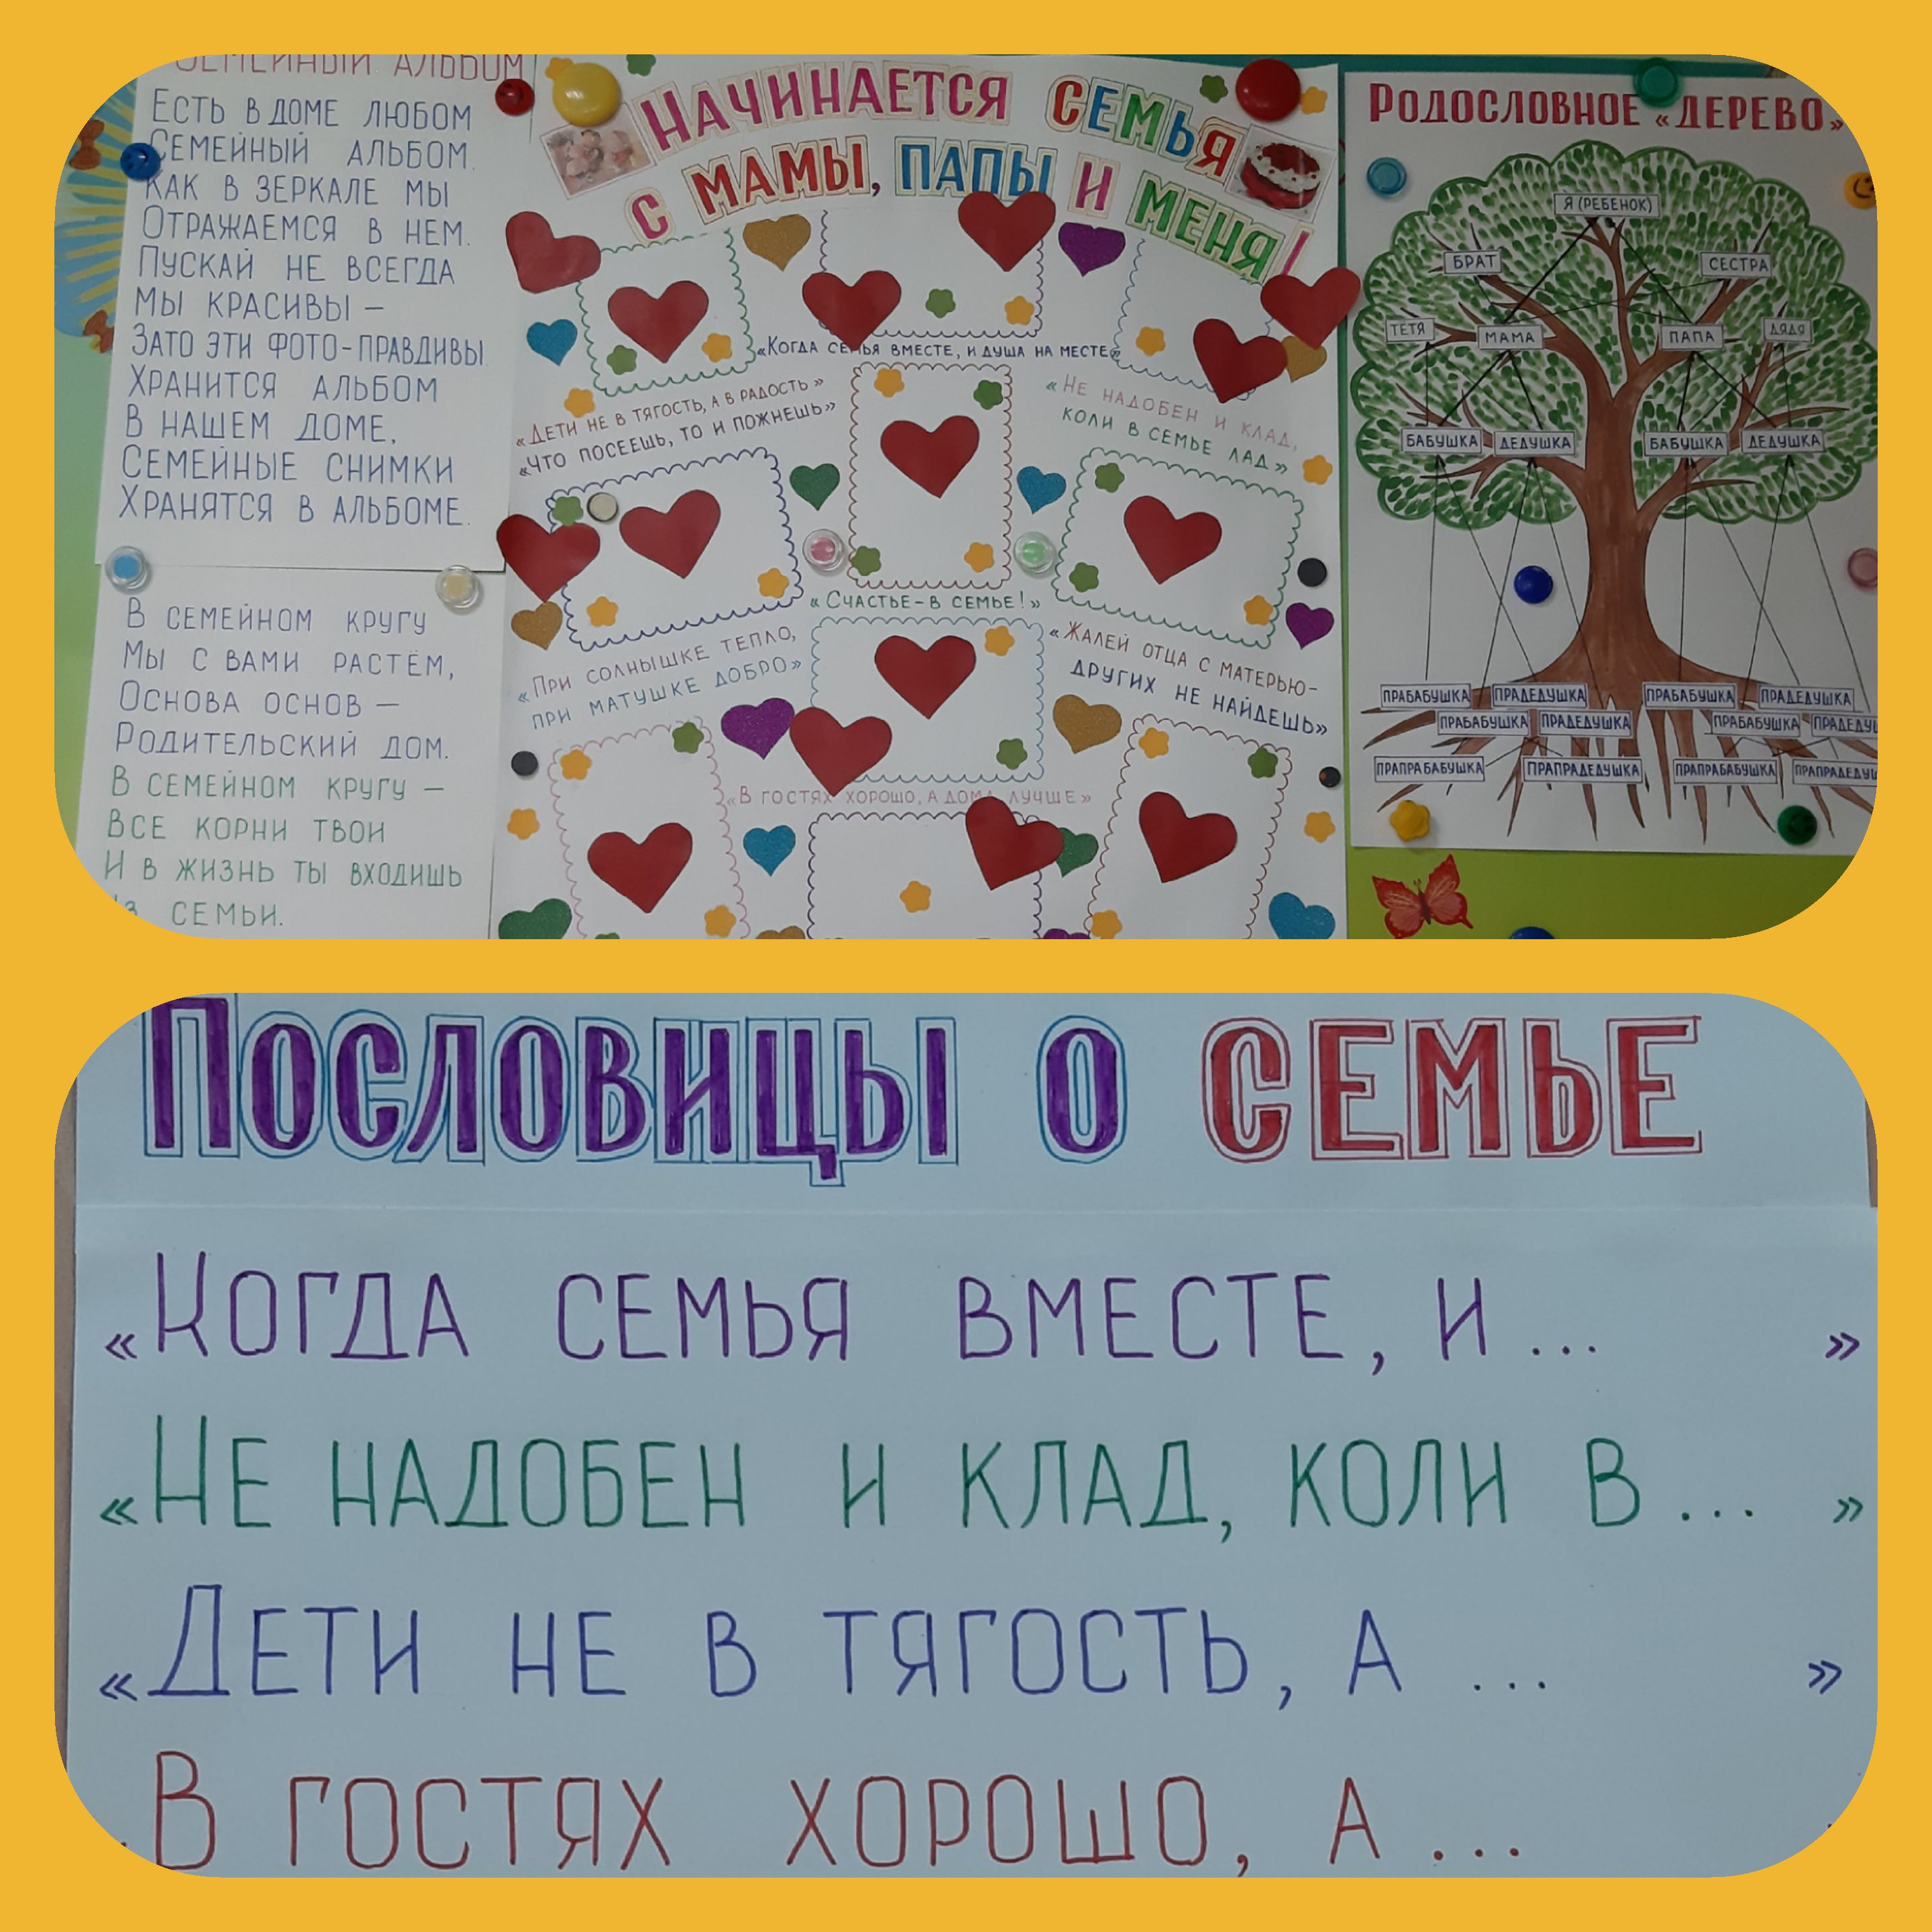 СЕМЕЙНЫЙ АЛЬБОМ
ЕСТЬ В ДОМЕ ЛЮБОМ
СЕМЕЙНЫЙ АЛЬБОМ.
КАК В ЗЕРКАЛЕ МЫ
ОТРАЖАЕМСЯ В НЕМ.
ПУСКАЙ НЕ ВСЕГДА
МЫ КРАСИВЫ –
ЗАТО ЭТИ ФОТО-ПРАВДИВЫ.
ХРАНИТСЯ АЛЬБОМ
В НАШЕМ ДОМЕ,
СЕМЕЙНЫЕ СНИМКИ
ХРАНЯТСЯ В АЛЬБОМЕ.
В СЕМЕЙНОМ КРУГУ
МЫ С ВАМИ РАСТЁМ,
ОСНОВА ОСНОВ –
РОДИТЕЛЬСКИЙ ДОМ.
В СЕМЕЙНОМ КРУГУ –
ВСЕ КОРНИ ТВОИ
И В ЖИЗНЬ ТЫ ВХОДИШЬ
ИЗ СЕМЬИ.
НАЧИНАЕТСЯ СЕМЬЯ
С МАМЫ, ПАПЫ И МЕНЯ!
«КОГДА СЕМЬЯ ВМЕСТЕ, И ДУША НА МЕСТЕ»
«ДЕТИ НЕ В ТЯГОСТЬ, А В РАДОСТЬ»
«ЧТО ПОСЕЕШЬ, ТО И ПОЖНЕШЬ»
«НЕ НАДОБЕН И КЛАД,
КОЛИ В СЕМЬЕ ЛАД»
«СЧАСТЬЕ-В СЕМЬЕ!»
«ПРИ СОЛНЫШКЕ ТЕПЛО,
ПРИ МАТУШКЕ ДОБРО»
«ЖАЛЕЙ ОТЦА С МАТЕРЬЮ-
ДРУГИХ НЕ НАЙДЕШЬ»
«В ГОСТЯХ ХОРОШО, А ДОМА ЛУЧШЕ»
РОДОСЛОВНОЕ «ДЕРЕВО»
Я (РЕБЕНОК)
БРАТ СЕСТРА
ТЕТЯ МАМА ПАПА ДЯДЯ
БАБУШКА ДЕДУШКА БАБУШКА ДЕДУШКА
ПРАБАБУШКА ПРАДЕДУШКА ПРАБАБУШКА ПРАДЕДУШКА
ПРАБАБУШКА ПРАДЕДУШКА ПРАБАБУШКА ПРАДЕДУ
ПРАПРАБАБУШКА ПРАПРАДЕДУШКА ПРАПРАБАБУШКА ПРАПРАДЕДУ
ПОСЛОВИЦЫ О СЕМЬЕ
«КОГДА СЕМЬЯ ВМЕСТЕ, И ... »
«НЕ НАДОБЕН И КЛАД, КОЛИ В ... »
«ДЕТИ НЕ В ТЯГОСТЬ, А ... »
В ГОСТЯХ ХОРОШО, А ...